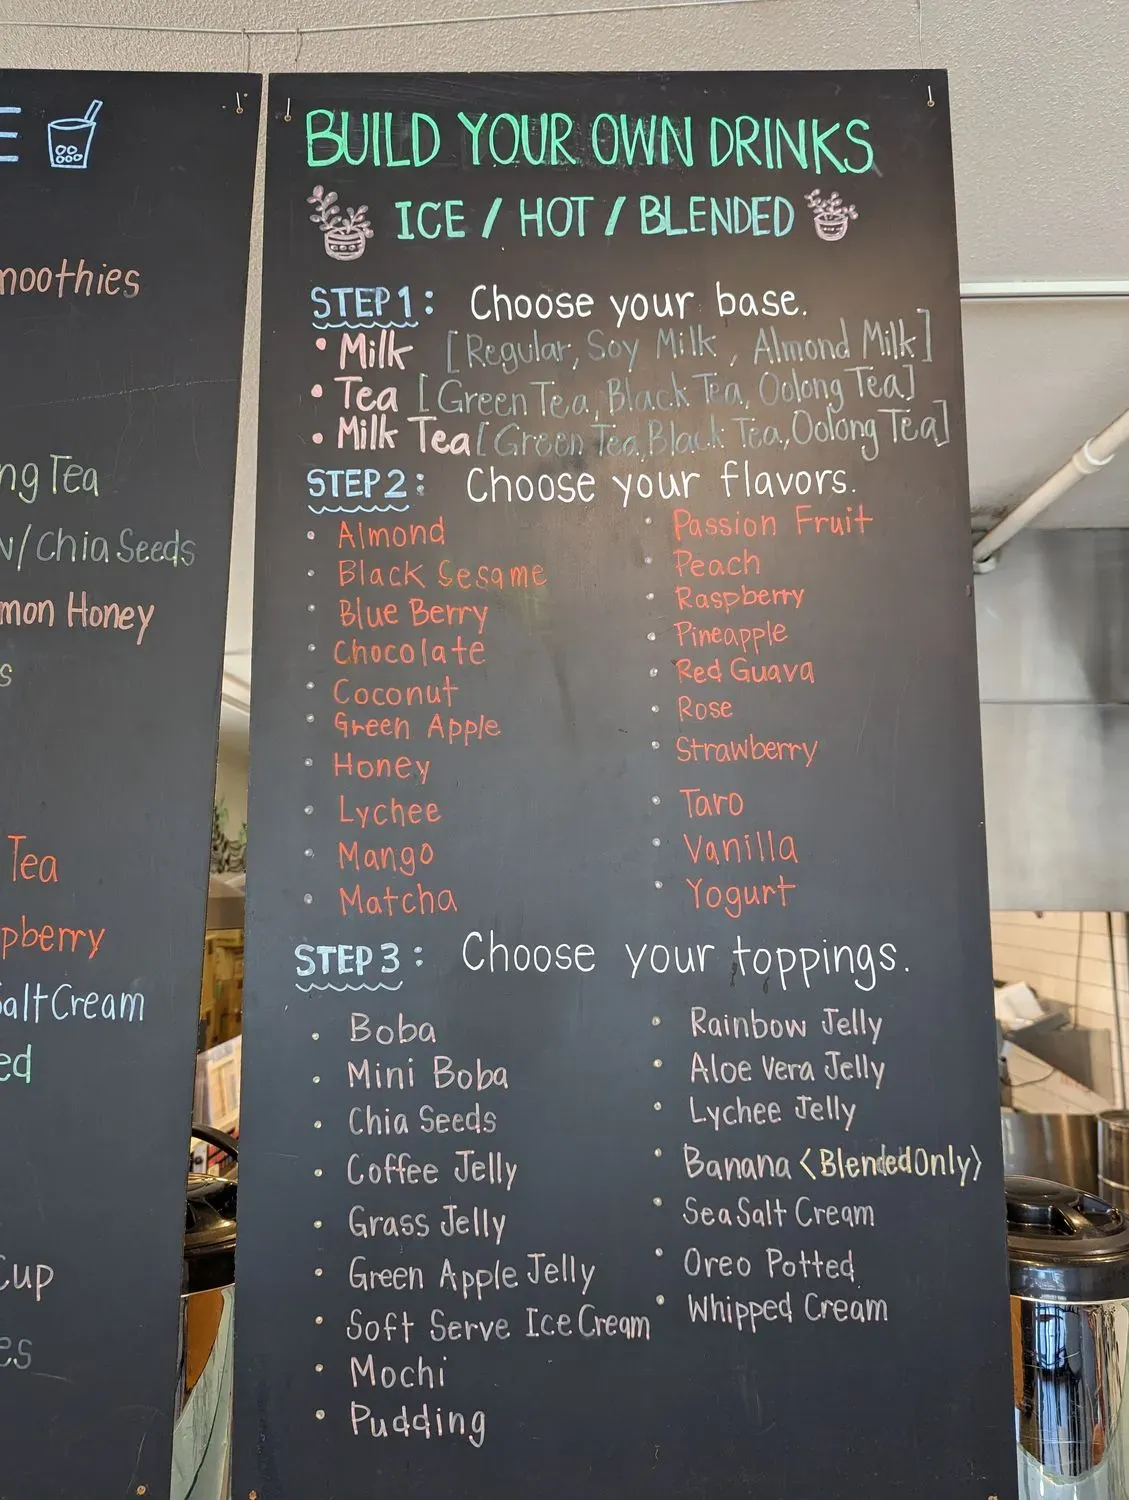 E
moothies
ng Tea
w/ Chia Seeds
mon Honey
s
Tea
pberry
Salt Cream
ed
Cup
es
BUILD YOUR OWN DRINKS
ICE / HOT / BLENDED
STEP 1: Choose your base.
• Milk [Regular, Soy Milk, Almond Milk]
• Tea [Green Tea, Black Tea, Oolong Tea]
• Milk Tea [Green Tea, Black Tea, Oolong Tea]
STEP 2: Choose your flavors.
• Almond
• Black Sesame
• Blue Berry
• Chocolate
• Coconut
• Green Apple
• Honey
• Lychee
• Mango
• Matcha
• Passion Fruit
• Peach
• Raspberry
• Pineapple
• Red Guava
• Rose
• Strawberry
• Taro
• Vanilla
• Yogurt
STEP 3: Choose your toppings.
• Boba
• Mini Boba
• Chia Seeds
• Coffee Jelly
• Grass Jelly
• Green Apple Jelly
• Soft Serve Ice Cream
• Mochi
• Pudding
• Rainbow Jelly
• Aloe Vera Jelly
• Lychee Jelly
• Banana <Blended Only>
• Sea Salt Cream
• Oreo Potted
• Whipped Cream